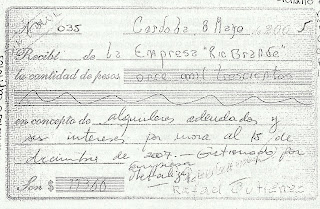 035 Cordoba 8 Mayo de 2005
Recibí de La Empresa "Rio Grande"
la cantidad de pesos once mil trescientos
en concepto de alquileres adeudados y
sus intereses por mora al 15 de
diciembre de 2007.- Gestionado por
Son $ 11300 Rafael Gutierrez